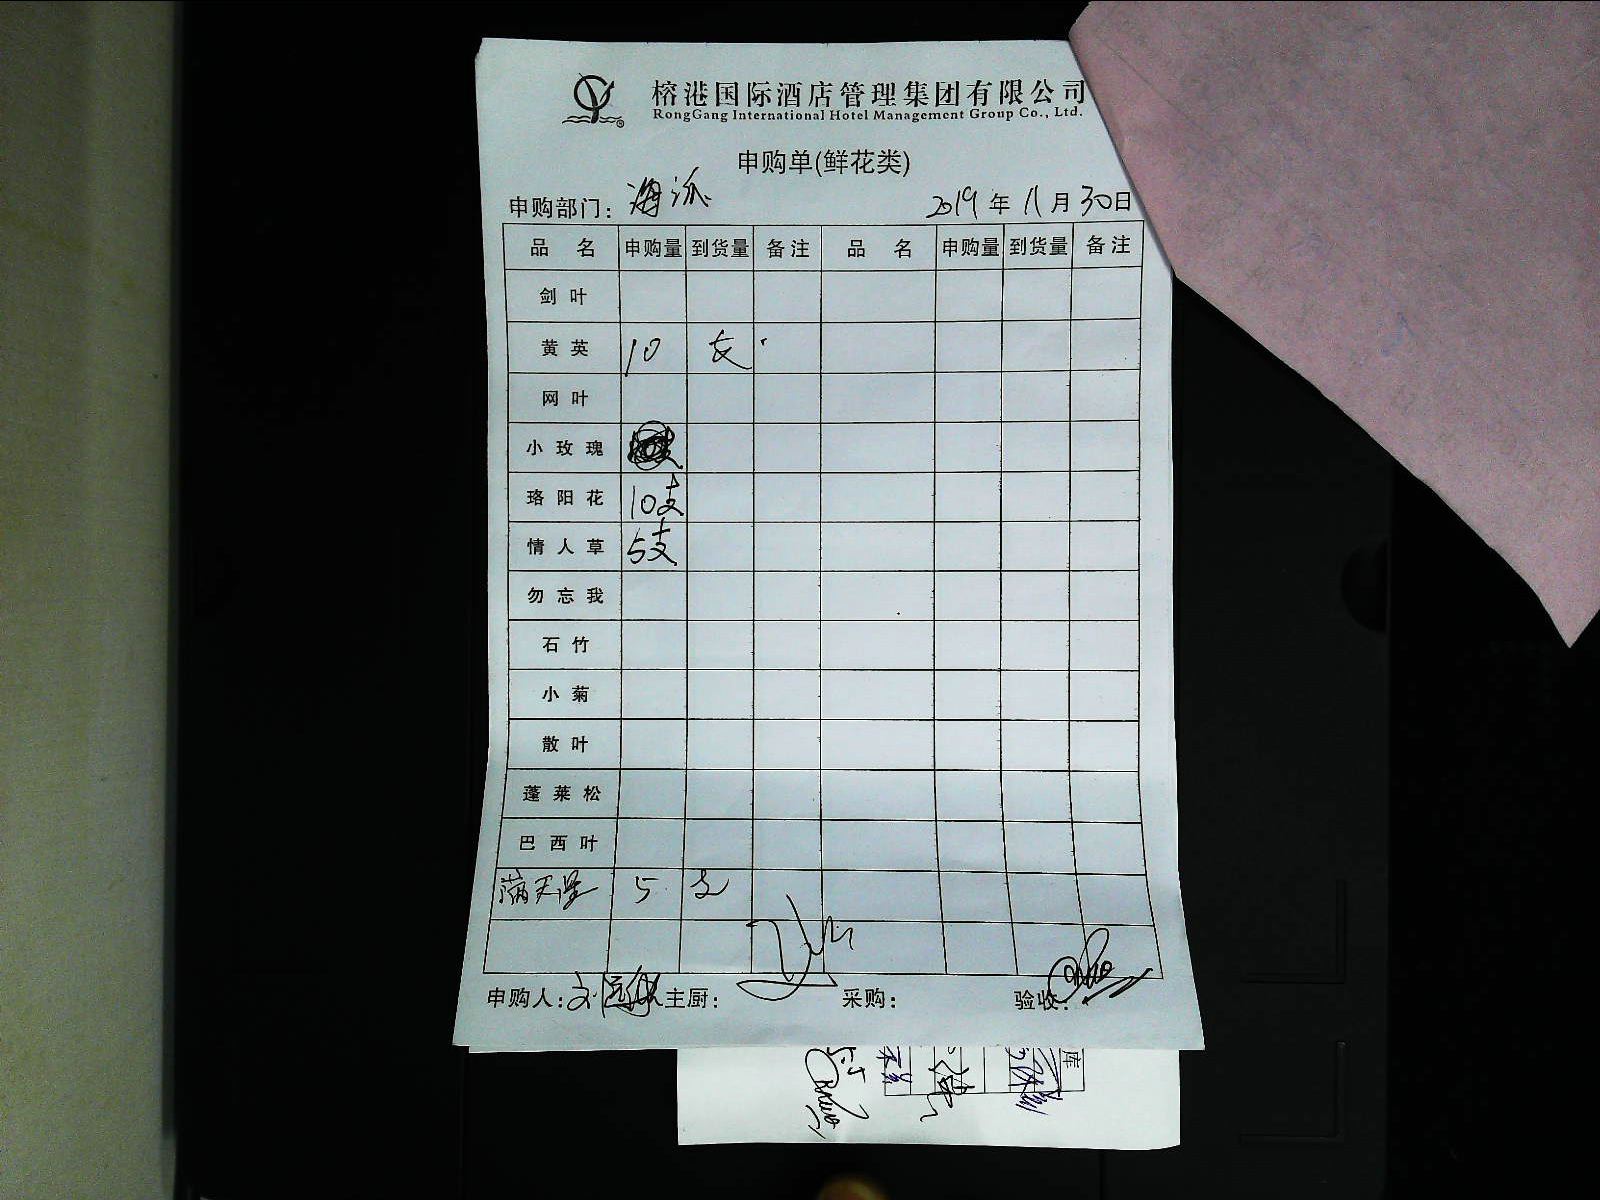 榕港国际酒店管理集团有限公司
RongGang International Hotel Management Group Co., Ltd.
申购单(鲜花类)
申购部门: 海派 2019 年 11 月 30 日
品 名 申购量 到货量 备注 品 名 申购量 到货量 备注
剑叶
黄英 10 支
网叶
小玫瑰
珞阳花 10支
情人草 5支
勿忘我
石竹
小菊
散叶
蓬莱松
巴西叶
满天星 5 支
申购人: 主厨: 采购: 验收:
库